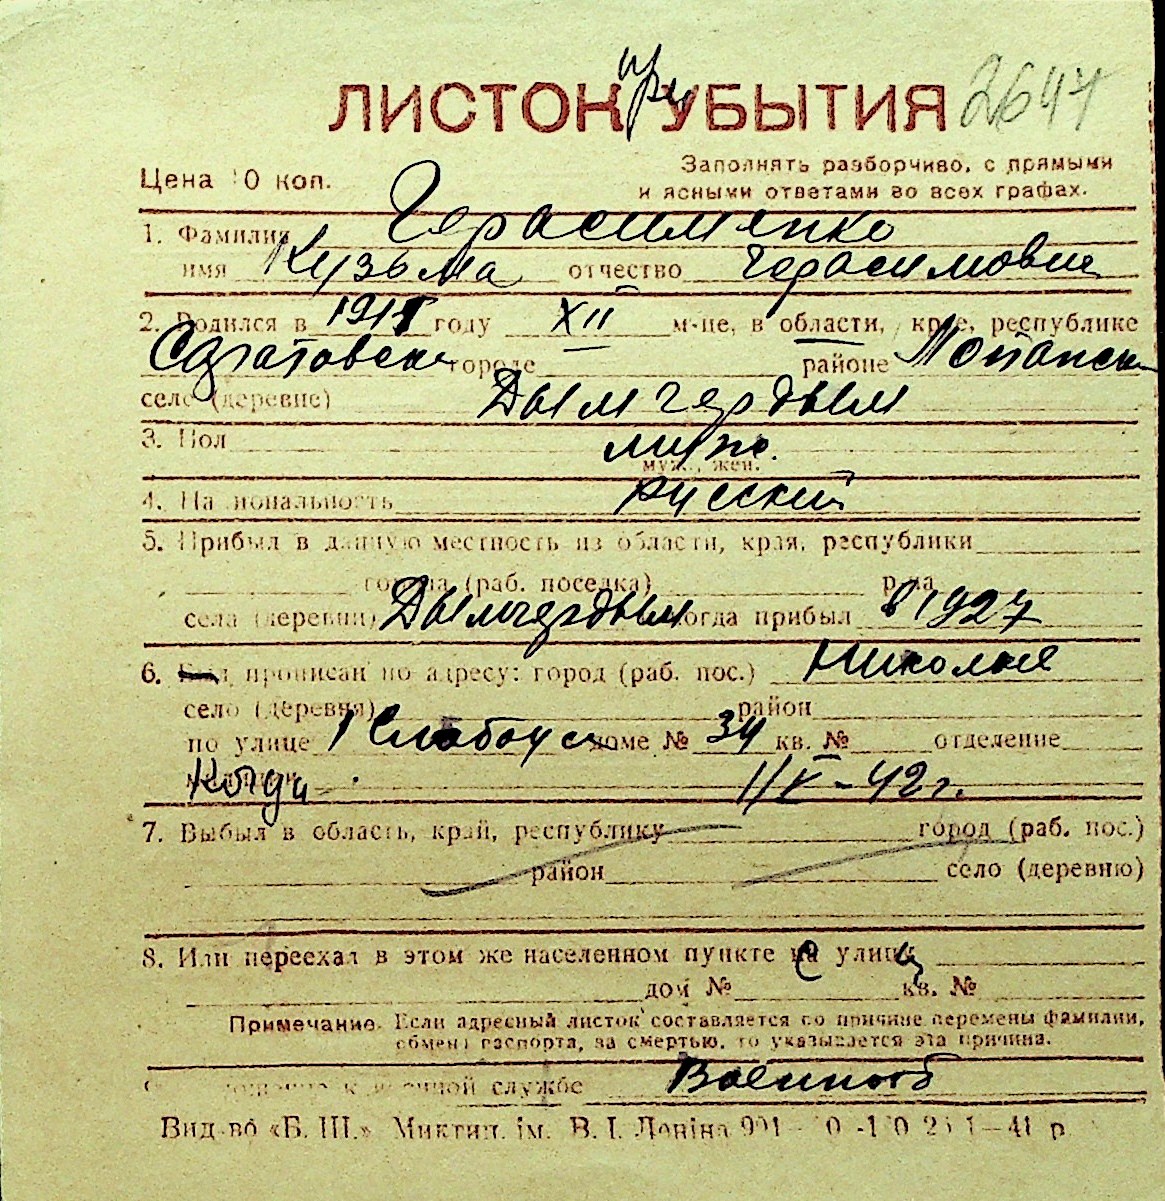 при
ЛИСТОК УБЫТИЯ 2647
Цена 10 коп.
Заполнять разборчиво, с прямыми
и ясными ответами во всех графах.
1. Фамилия Герасименко
имя Кузьма отчество Герасимович
2. Родился в 1915 году XII м-це, в области, крае, республике
Саратовск городе районе
село (деревне) Дымчердым
3. Пол муж.
муж., жен.
4. Национальность русский
5. Прибыл в данную местность из области, края, республики
города (раб. поселка) р-на
села (деревни) Дымчердым когда прибыл в 1927
6. прописан по адресу: город (раб. пос.) Николаев
село (деревня) район
по улице 1 Слободск доме № 34 кв. № отделение
Когда 1/V-42 г.
7. Выбыл в область, край, республику город (раб. пос.)
район село (деревню)
8. Или переехал в этом же населенном пункте с улицы
дом № кв. №
Примечание. Если адресный листок составляется по причине перемены фамилии,
обмена паспорта, за смертью, то указывается эта причина.
к военной службе Военнооб
Вид-во «Б. Ш.» Миктип. ім. В. І. Леніна